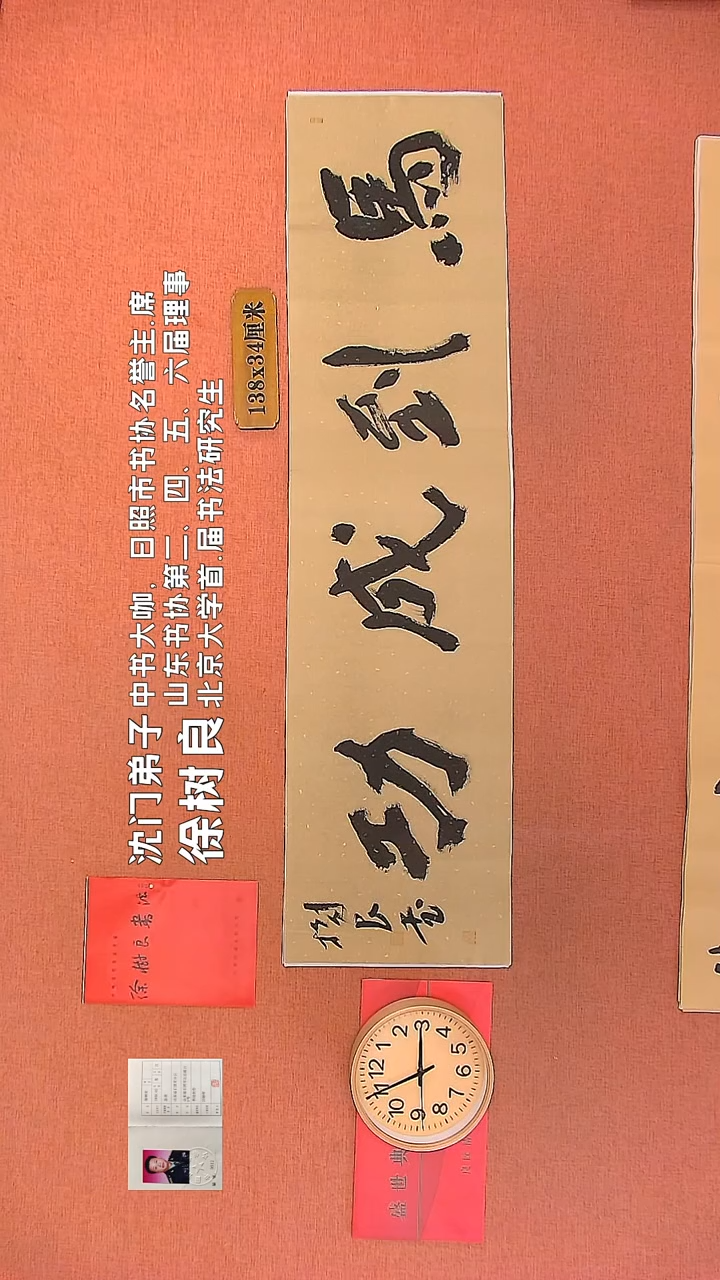 沈门弟子 中书大咖，日照市书协名誉主席
山东书协第二、四、五、六届理事
徐树良 北京大学首届书法研究生
138x34厘米
馬到成功
樹良書
徐樹良書法
盛世典
12
1
2
3
4
5
6
7
8
9
10
11